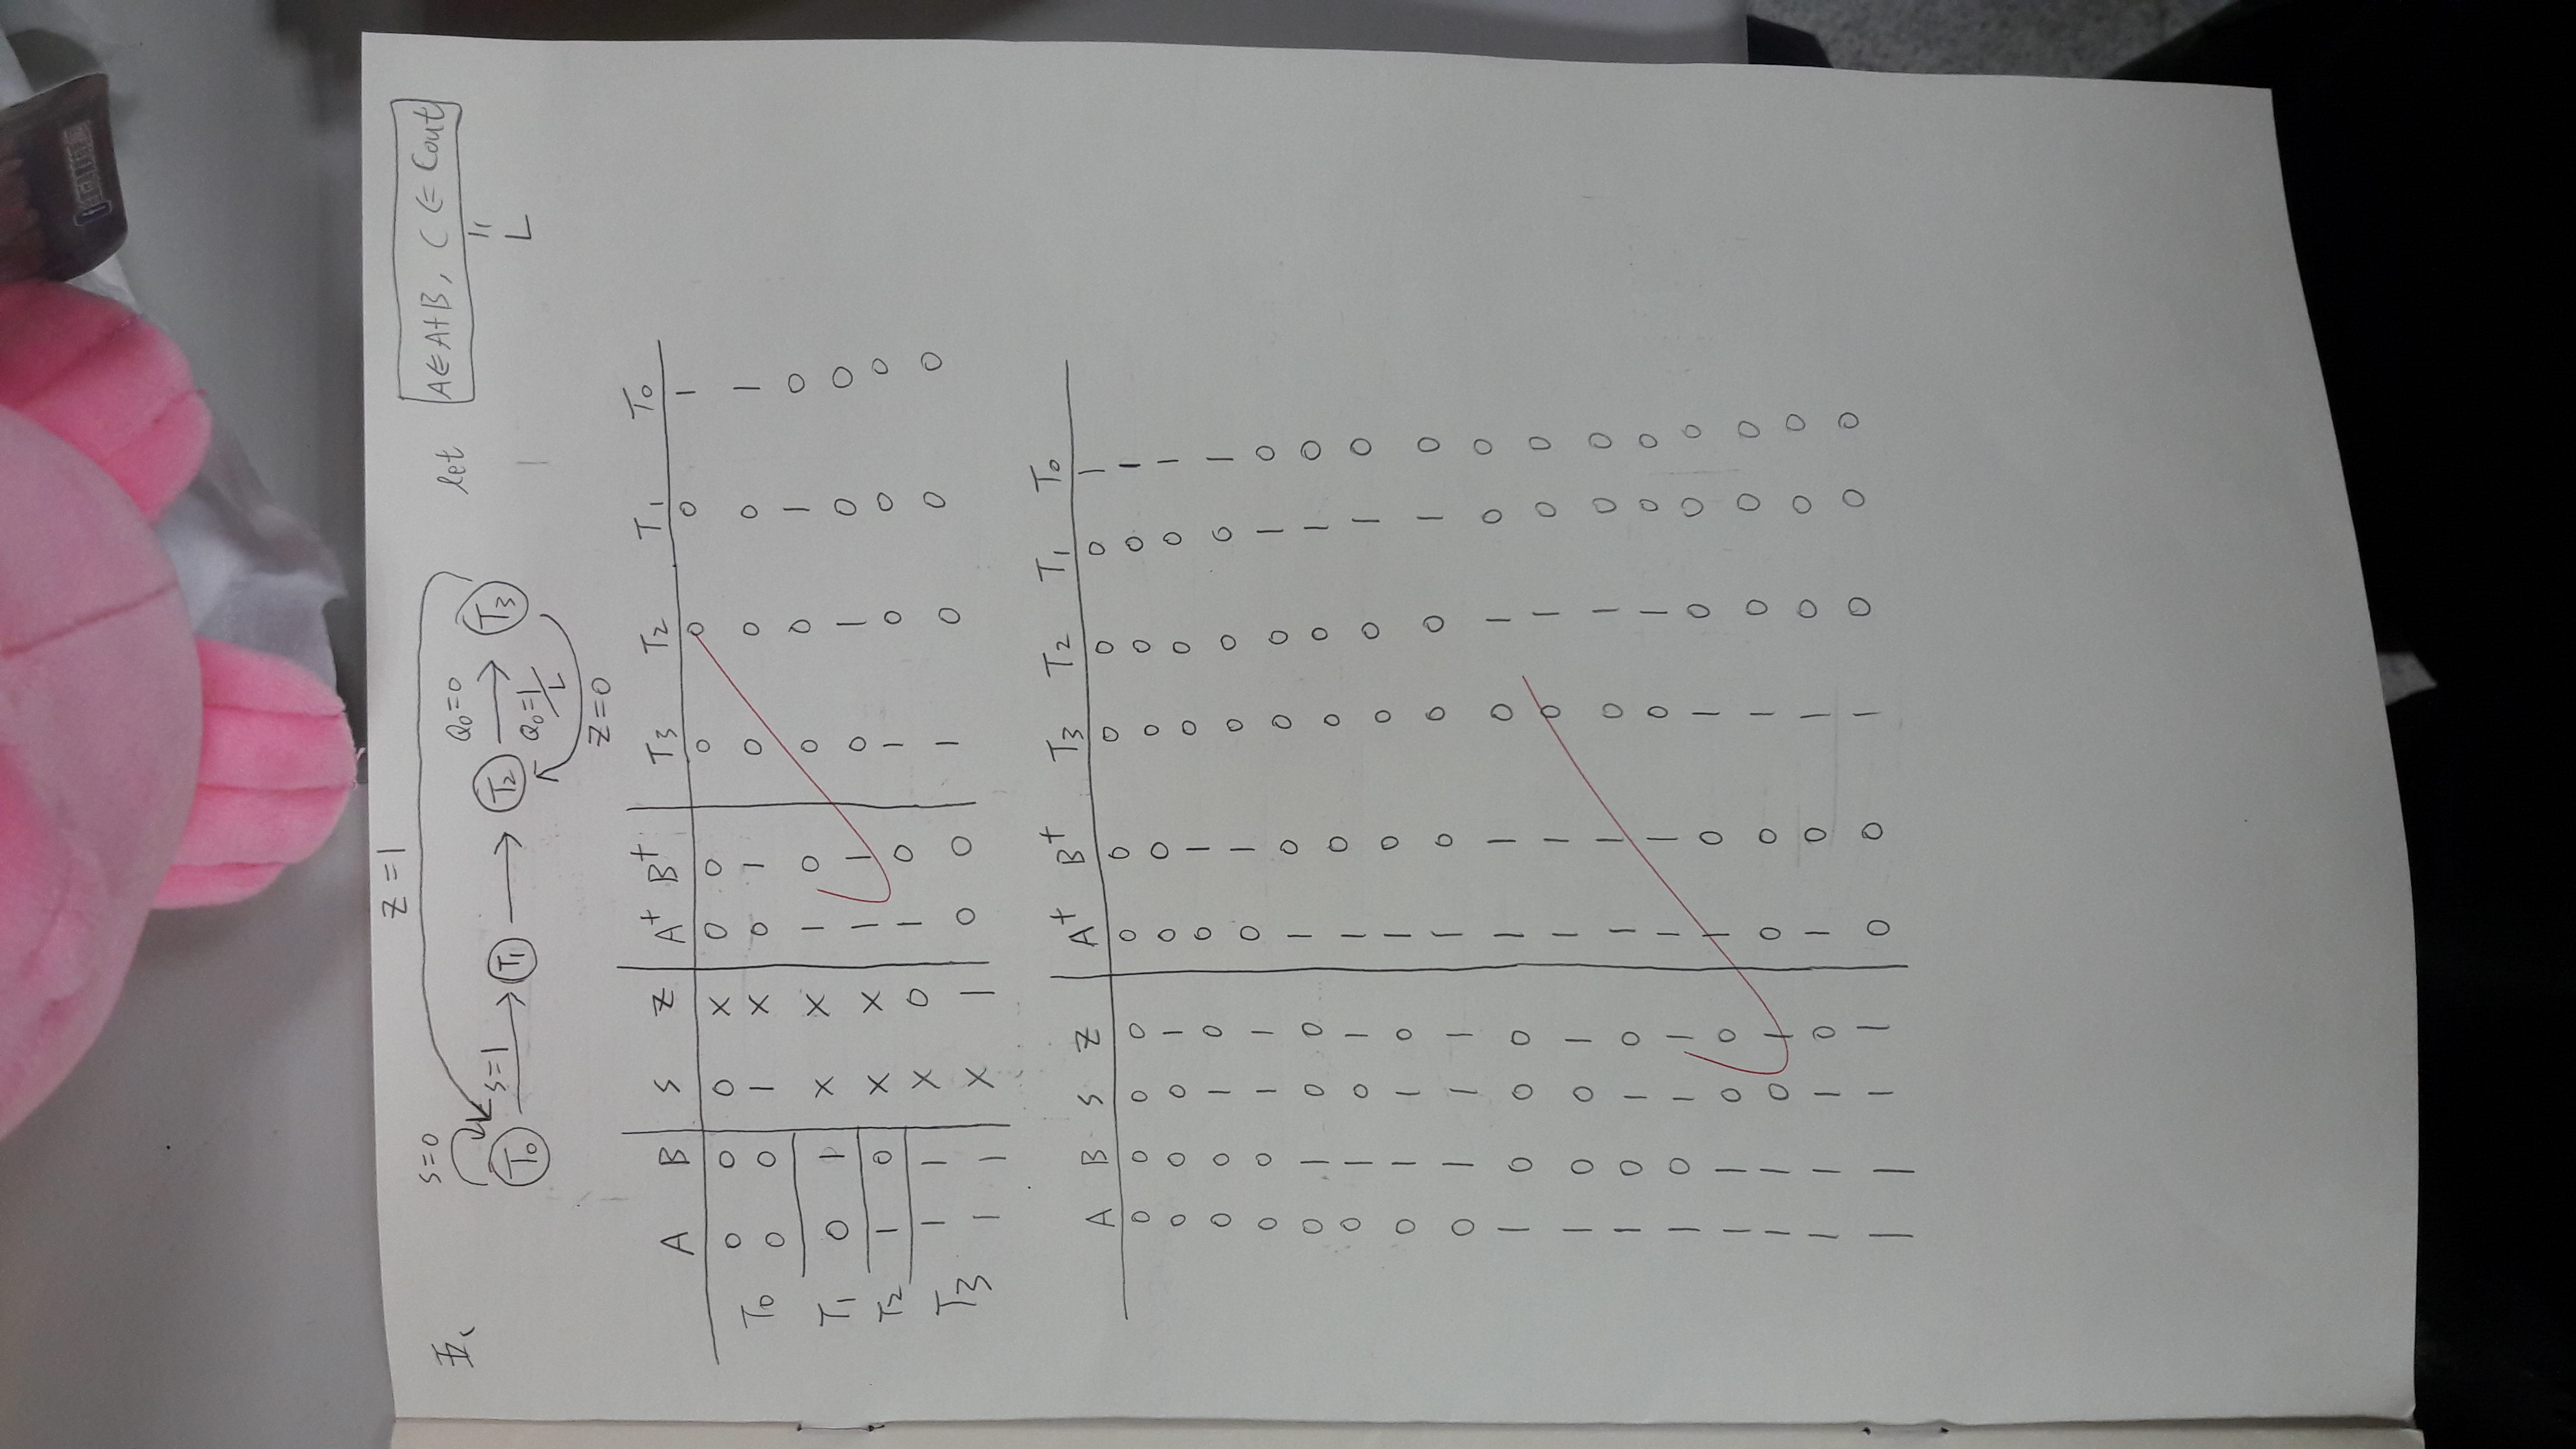 五、
Z=1
S=0
let A⇐A+B, C⇐Cout
"
L
T0 S=1 T1 T2 Q0=0 T3
Q0=1/L
Z=0
A B S Z A+ B+ T3 T2 T1 T0
T0 0 0 0 X 0 0 0 0 0 1
0 0 1 X 0 1 0 0 0 1
T1 0 1 X X 1 0 0 0 1 0
T2 1 0 X X 1 1 0 1 0 0
T3 1 1 X 0 1 0 1 0 0 0
1 1 X 1 0 0 1 0 0 0
A B S Z A+ B+ T3 T2 T1 T0
0 0 0 0 0 0 0 0 0 1
0 0 0 1 0 0 0 0 0 1
0 0 1 0 0 1 0 0 0 1
0 0 1 1 0 1 0 0 0 1
0 1 0 0 1 0 0 0 1 0
0 1 0 1 1 0 0 0 1 0
0 1 1 0 1 0 0 0 1 0
0 1 1 1 1 0 0 0 1 0
1 0 0 0 1 1 0 1 0 0
1 0 0 1 1 1 0 1 0 0
1 0 1 0 1 1 0 1 0 0
1 0 1 1 1 1 0 1 0 0
1 1 0 0 1 0 1 0 0 0
1 1 0 1 0 0 1 0 0 0
1 1 1 0 1 0 1 0 0 0
1 1 1 1 0 0 1 0 0 0